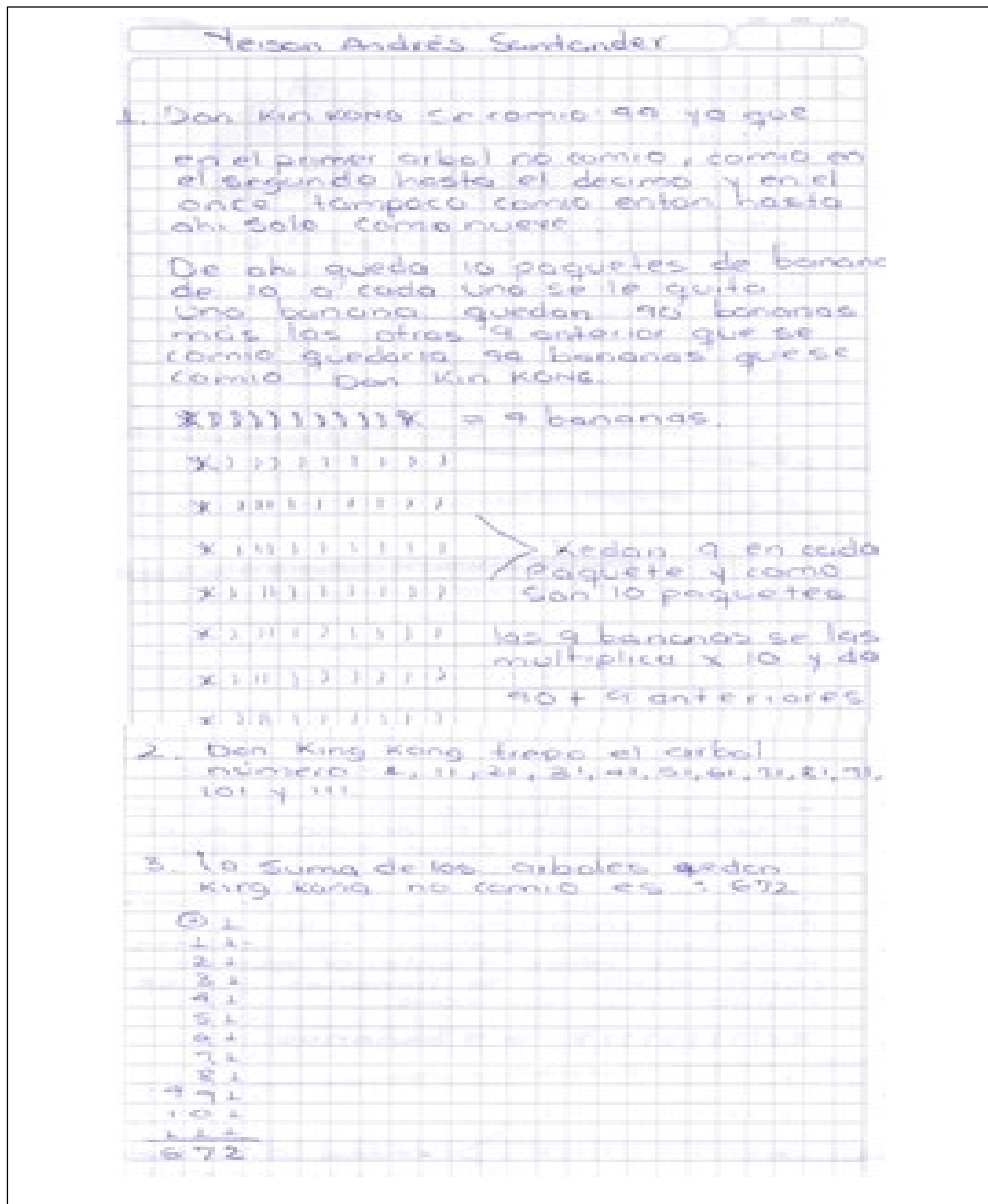 Yeison Andrés Santander
1. Don Kin Kong se comio 99 ya que
en el primer arbol no comio, comio en
el segundo hasta el decimo y en el
once tampoco comio enton hasta
ahi solo comio nueve.
De ahi queda 10 paquetes de banano
de 10 a cada uno se le quita
una banana quedan 90 bananas
más las otras 9 anterior que se
comio quedaria 99 bananas que se
comio Don Kin KONG.
= 9 bananas.
Kedan 9 en cada
Paquete y como
son 10 paquetes
las 9 bananas se las
multiplica x 10 y da
90 + 9 anteriores
2. Don King Kong trepo el arbol
número 1, 11, 21, 31, 41, 51, 61, 71, 81, 91,
101 y 111
3. La suma de los arboles
King Kong no comio es : 672
1
11
21
31
41
51
61
71
81
+ 91
101
111
672